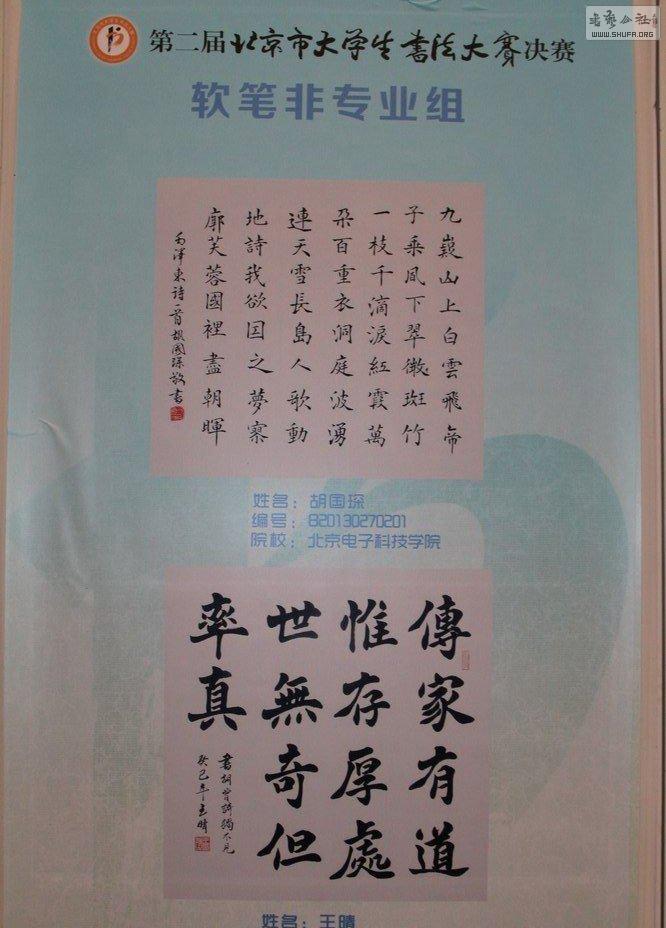 第二届北京市大学生書法大賽决赛
WWW.SHUFA.ORG
软笔非专业组
九嶷山上白雲飛帝
子乘风下翠微斑竹
一枝千滴淚紅霞萬
朶百重衣洞庭波湧
連天雪長島人歌動
地詩我欲因之夢寥
廓芙蓉國裡盡朝暉
毛澤東詩一首胡國琛敬書
姓名：胡国琛
编号：820130270201
院校：北京电子科技学院
傳家有道
惟存厚處
世無奇但
率真
癸巳年王晴
姓名：王晴